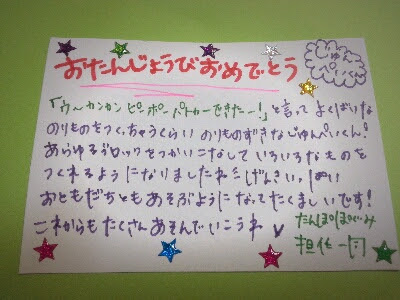 おたんじょうびおめでとう
じゅん
ぺいくん
「ウ〜カンカンピーポーパトカーできたー!」と言って よくばりな
のりものをつくっちゃうくらい のりものずきな じゅんぺいくん!
あらゆるブロックをつかいこなして いろいろなものを
つくれるように なりましたね
げんきいっぱい
おともだちとも あそぶように なって たくましいです!
これからも たくさん あそんでいこうね
たんぽぽぐみ
担任一同